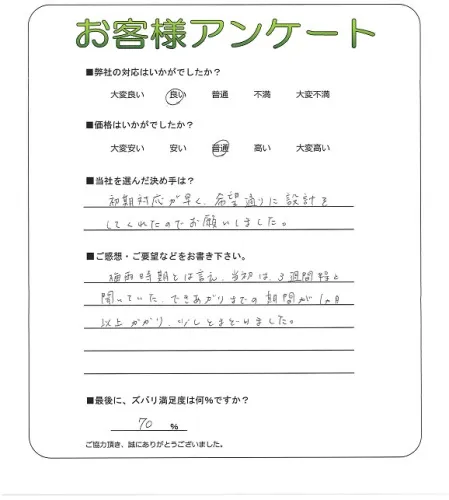 お客様アンケート
■弊社の対応はいかがでしたか？
大変良い 良い 普通 不満 大変不満
■価格はいかがでしたか？
大変安い 安い 普通 高い 大変高い
■当社を選んだ決め手は？
初期対応が早く、希望通りに設計を
してくれたのでお願いしました。
■ご感想・ご要望などをお書き下さい。
梅雨時期とは言え、当初は、3週間程と
聞いていた、できあがりまでの期間が1ヵ月
以上かかり、少しとまどいました。
■最後に、ズバリ満足度は何%ですか？
70 %
ご協力頂き、誠にありがとうございました。